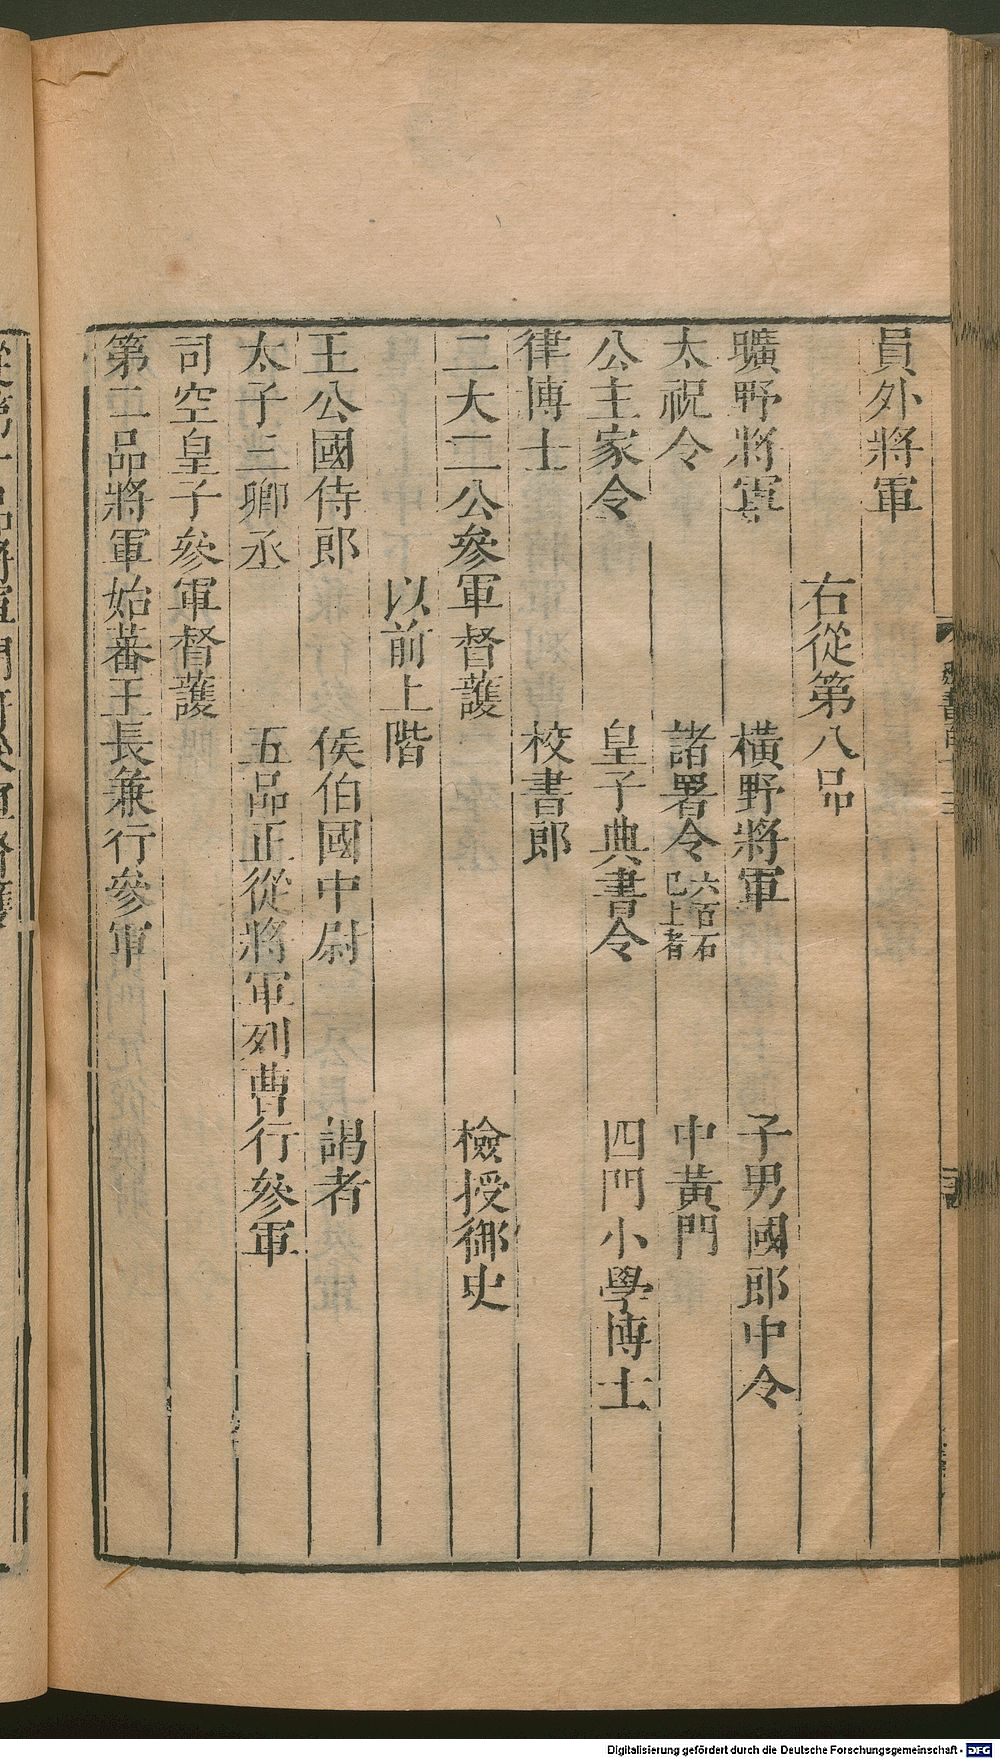 員外將軍
右從第八品
曠野將軍 橫野將軍 子男國郎中令
太祝令 諸署令 六百石已上者 中黃門
公主家令 皇子典書令 四門小學博士
律博士 校書郎
二大二公參軍督護 檢授御史
以前上階
王公國侍郎 侯伯國中尉 謁者
太子三卿丞 五品正從將軍列曹行參軍
司空皇子參軍督護
第二品將軍始蕃王長兼行參軍
Digitalisierung gefördert durch die Deutsche Forschungsgemeinschaft - DFG